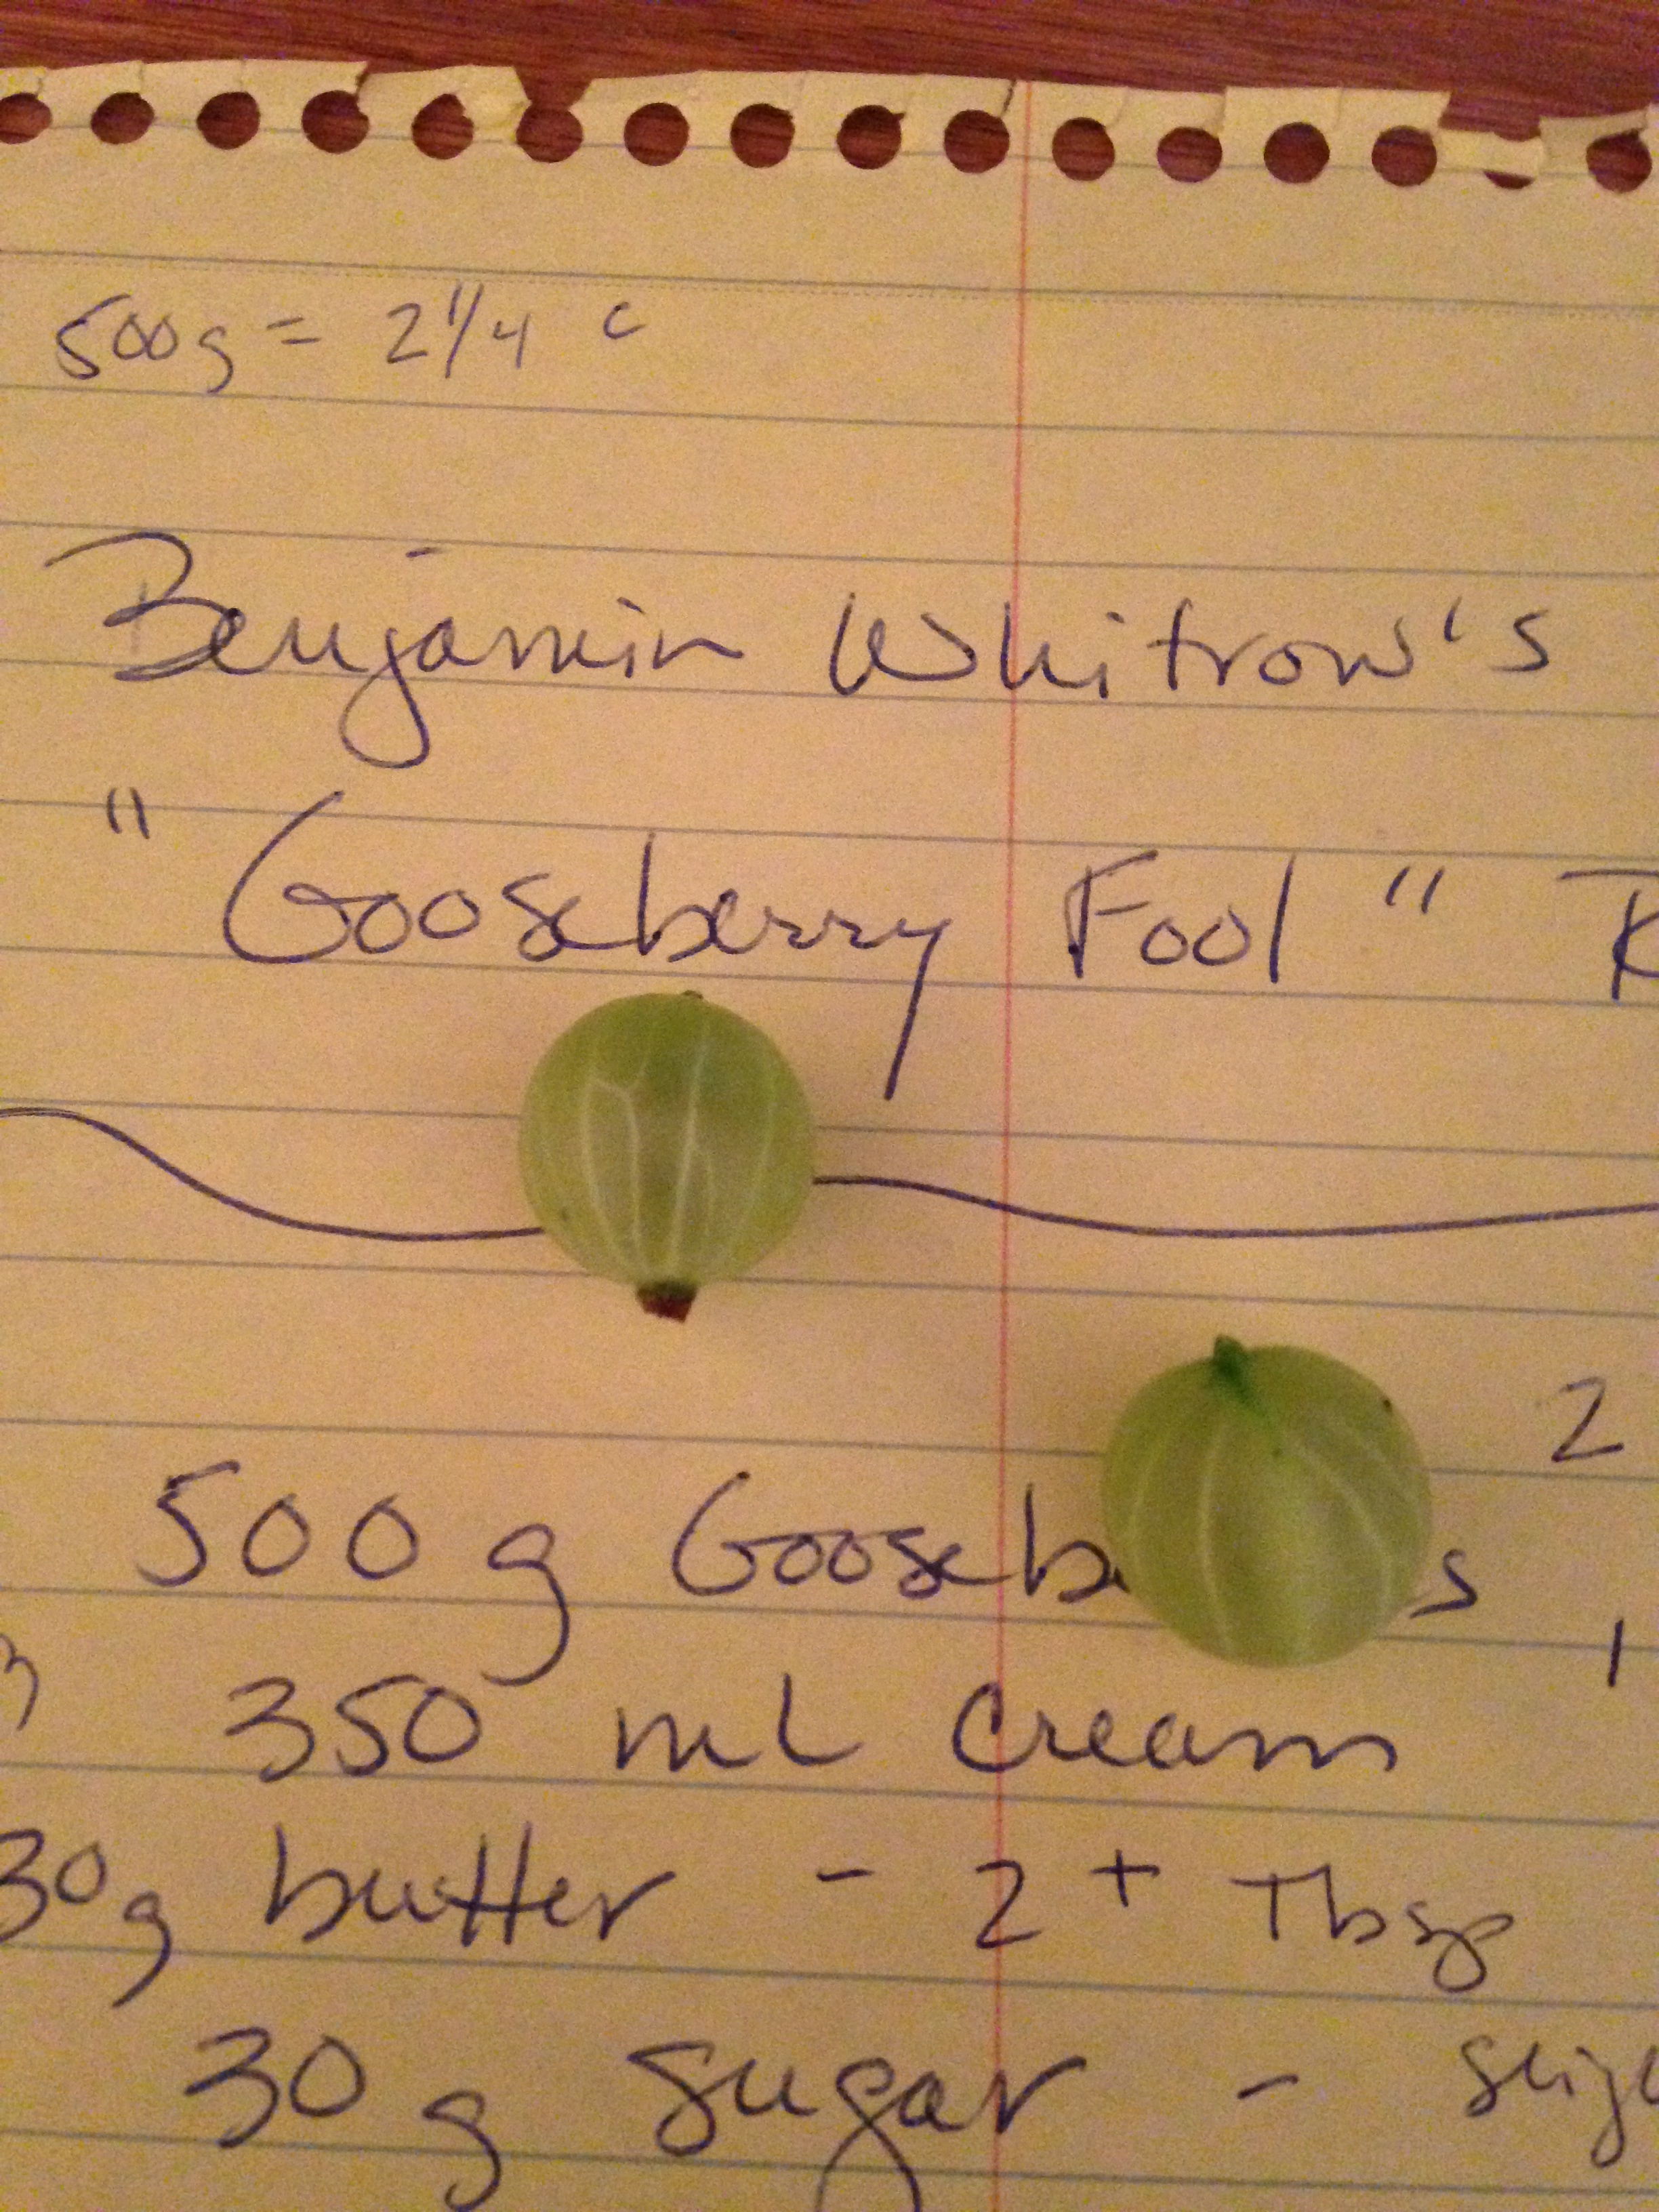 500g = 2 1/4 c
Benjamin Whitrow's
"Gooseberry Fool" R
2
500 g Gooseb s
1
350 mL Cream
30g butter - 2 + Tbsp
30 g sugar -